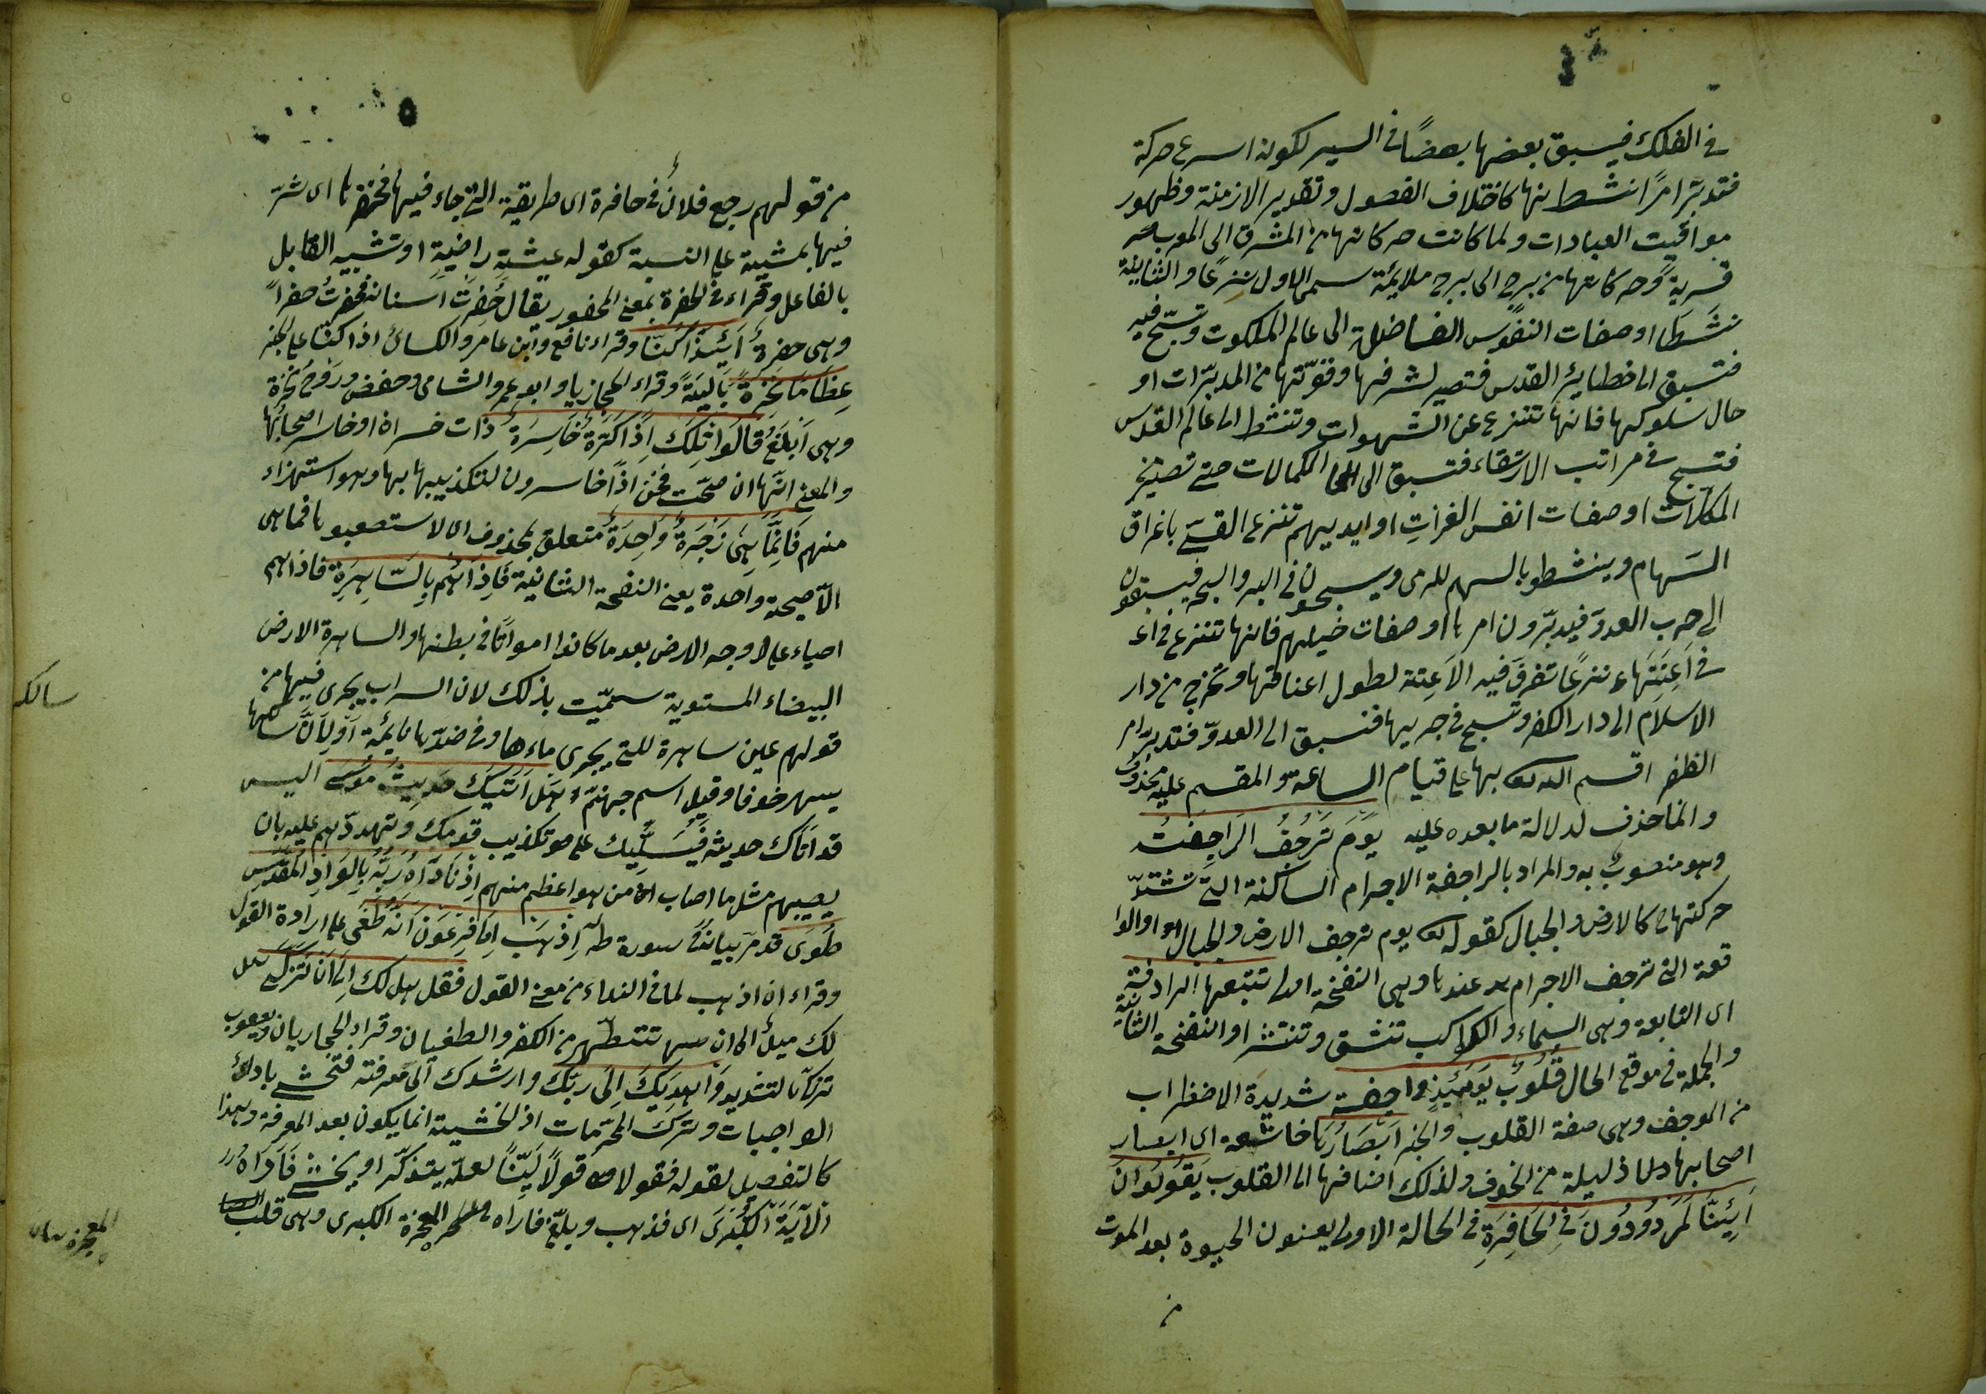 في الفلك فيسبق بعضها بعضًا في السير لكونه اسرع حركة
فتدبّر امرًا نشط بها كاختلاف الفصول وتقدير الازمنة وظهور
مواقيت العبادات ولما كانت حركاتها من المشرق الى المغرب
قسرية وحركاتها من برج الى برج ملايمة سمى الاول نزعا والثانية
نشطا اوصفات النفوس الفاضلة الى عالم الملكوت وتسبح فيه
فتسبق الى حظاير القدس فتصير لشرفها وقوتها من المدبرات او
حال سلوكها فانها تنزع عن الشهوات وتنشط الى عالم القدس
فتسبح في مراتب الارتقاء فتسبق الى الكمالات حتى تصير من
المكملات اوصفات انفس الغزات او ايديهم تنزع القسى باغراق
السهام وينشطو بالسهم للرمى ويسبحون في البر والبحر فيسبقون
الى حرب العدو فيدبّرون امرها اوصفات خيلهم فانها تنزع في اع
في اعنتها نزعًا تغرق فيه الاعنة لطول اعناقها وتخرج من دار
الاسلام الى دار الكفر وتسبح في جريها فتسبق الى العدوّ فتدبر امر
الظفر اقسم الله بها على قيام الساعة والمقسم عليه محذوف
وانما حذف لدلالة ما بعده عليه يَوْمَ تَرْجُفُ الرَاجِفَةُ
وهو منصوب به والمراد بالراجفة الاجرام الساكنة التي تشتدّ
حركتها ح كالارض والجبال كقوله يوم ترجف الارض والجبال او الوا
قعة التي ترجف الاجرام عندها وهي النفخة الاولى تتبعها الرادفة
اى التابعة وهى السماء والكواكب تنشق وتنتثر او النفخة الثانية
والجملة في موقع الحال قُلُوبٌ يَوْمَئِذٍ واجفة شديدة الاضطراب
من الوجف وهى صفة القلوب والخبر ابْصَارُهَا خاشعة اى ابصار
اصحابها ذليلة من الخوف ولذلك اضافها الى القلوب يَقُولُونَ
اَئِنَّا لَمَرْدُودُونَ فِي الحَافِرَةِ في الحالة الاولى يعنون الحيوة بعد الموت
من
من قولهم رجع فلانٌ في حافرة اى طريقة التي جاء فيها فحفرها اى اثر
فيها بمشيه على النسبة كقوله عيشة راضية او تشبيه القابل
بالفاعل وقراء في الحفرة بمعنى المحفور يقال حُفِرَتْ اسنانه فحفرتُ حفراً
وهى حفرةٌ أَئِذَا كُنّا وقراء نافع وابن عامر والكسائى اذا كنا على الخبر
عِظَامًا نَخِرَةً بَالِيَةً وقراء الحجازيا وابو عمر والشامى وحفص وروح نخرة
وهى اَبْلَغُ قَالُوا تِلْكَ اِذًا كَرَّةٌ خَاسِرَةٌ ذات خسران او خاسر اصحابُها
والمعنى انّها ان صحّت فنحن اذًا خاسرون لتكذيبها بها وهو استهزاء
منهم فَاِنَّمَا هِىَ زَجْرَةٌ وَاحِدَةٌ متعلق بمحذوف اى لا تستصعبوها فما هى
الّا صيحة واحدة يعنى النفخة الثانية فَاِذَا هُمْ بِالسَّاهِرَةِ فاذا هم
احياء على وجه الارض بعد ما كانوا امواتًا في بطنها والساهرة الارض
البيضاء المستوية سميّت بذلك لان السراب يجرى فيها من
قولهم عين ساهرة للتى يجرى ماءها وفي ضدّها نايمة اَو لِاَنَّ سالكها
يسهر خوفا وقيل اسم جهنم هَلْ اَتَيكَ حَدِيثُ مُوسَى اليس
قد اتاك حديثه فَيُسَلِّيك على تكذيب قومك وتهددّهم عليه بان
يصيبهم مثل ما اصاب من هو اعظم منهم اِذْ نَادَاهُ رَبُّهُ بِالوَادِ المُقَدَّسِ
طُوًى قد مرّ بيانُهُ في سورة طه اِذْهَبْ اِلَى فِرْعَوْنَ اِنَّهُ طَغَى على ارادة القول
وقراء ان اذهب لما في النداء من معنى القول فقل هل لك اِلَى اَنْ تَزَكَّى هل
لك ميلٌ الى ان تتطهر من الكفر والطغيان وقراء الحجازيان ويعقوب
تزّكّى بالتشديد وَاَهْدِيَكَ اِلَى رَبّكَ وارشدك الى معرفته فَتَخْشَى باداء
الواجبات وترك المحرّمات اذ الخشية انما يكون بعد المعرفة وهذا
كالتفصيل لقوله فقولا له قولًا لَيّنًا لعله يتذكّر او يخشى فَاَرَاهُ
الْآيَةَ الْكُبْرَى اى فذهب وبلّغ فاراه المعجزة الكبرى وهى قلب
سالك
المعجزة